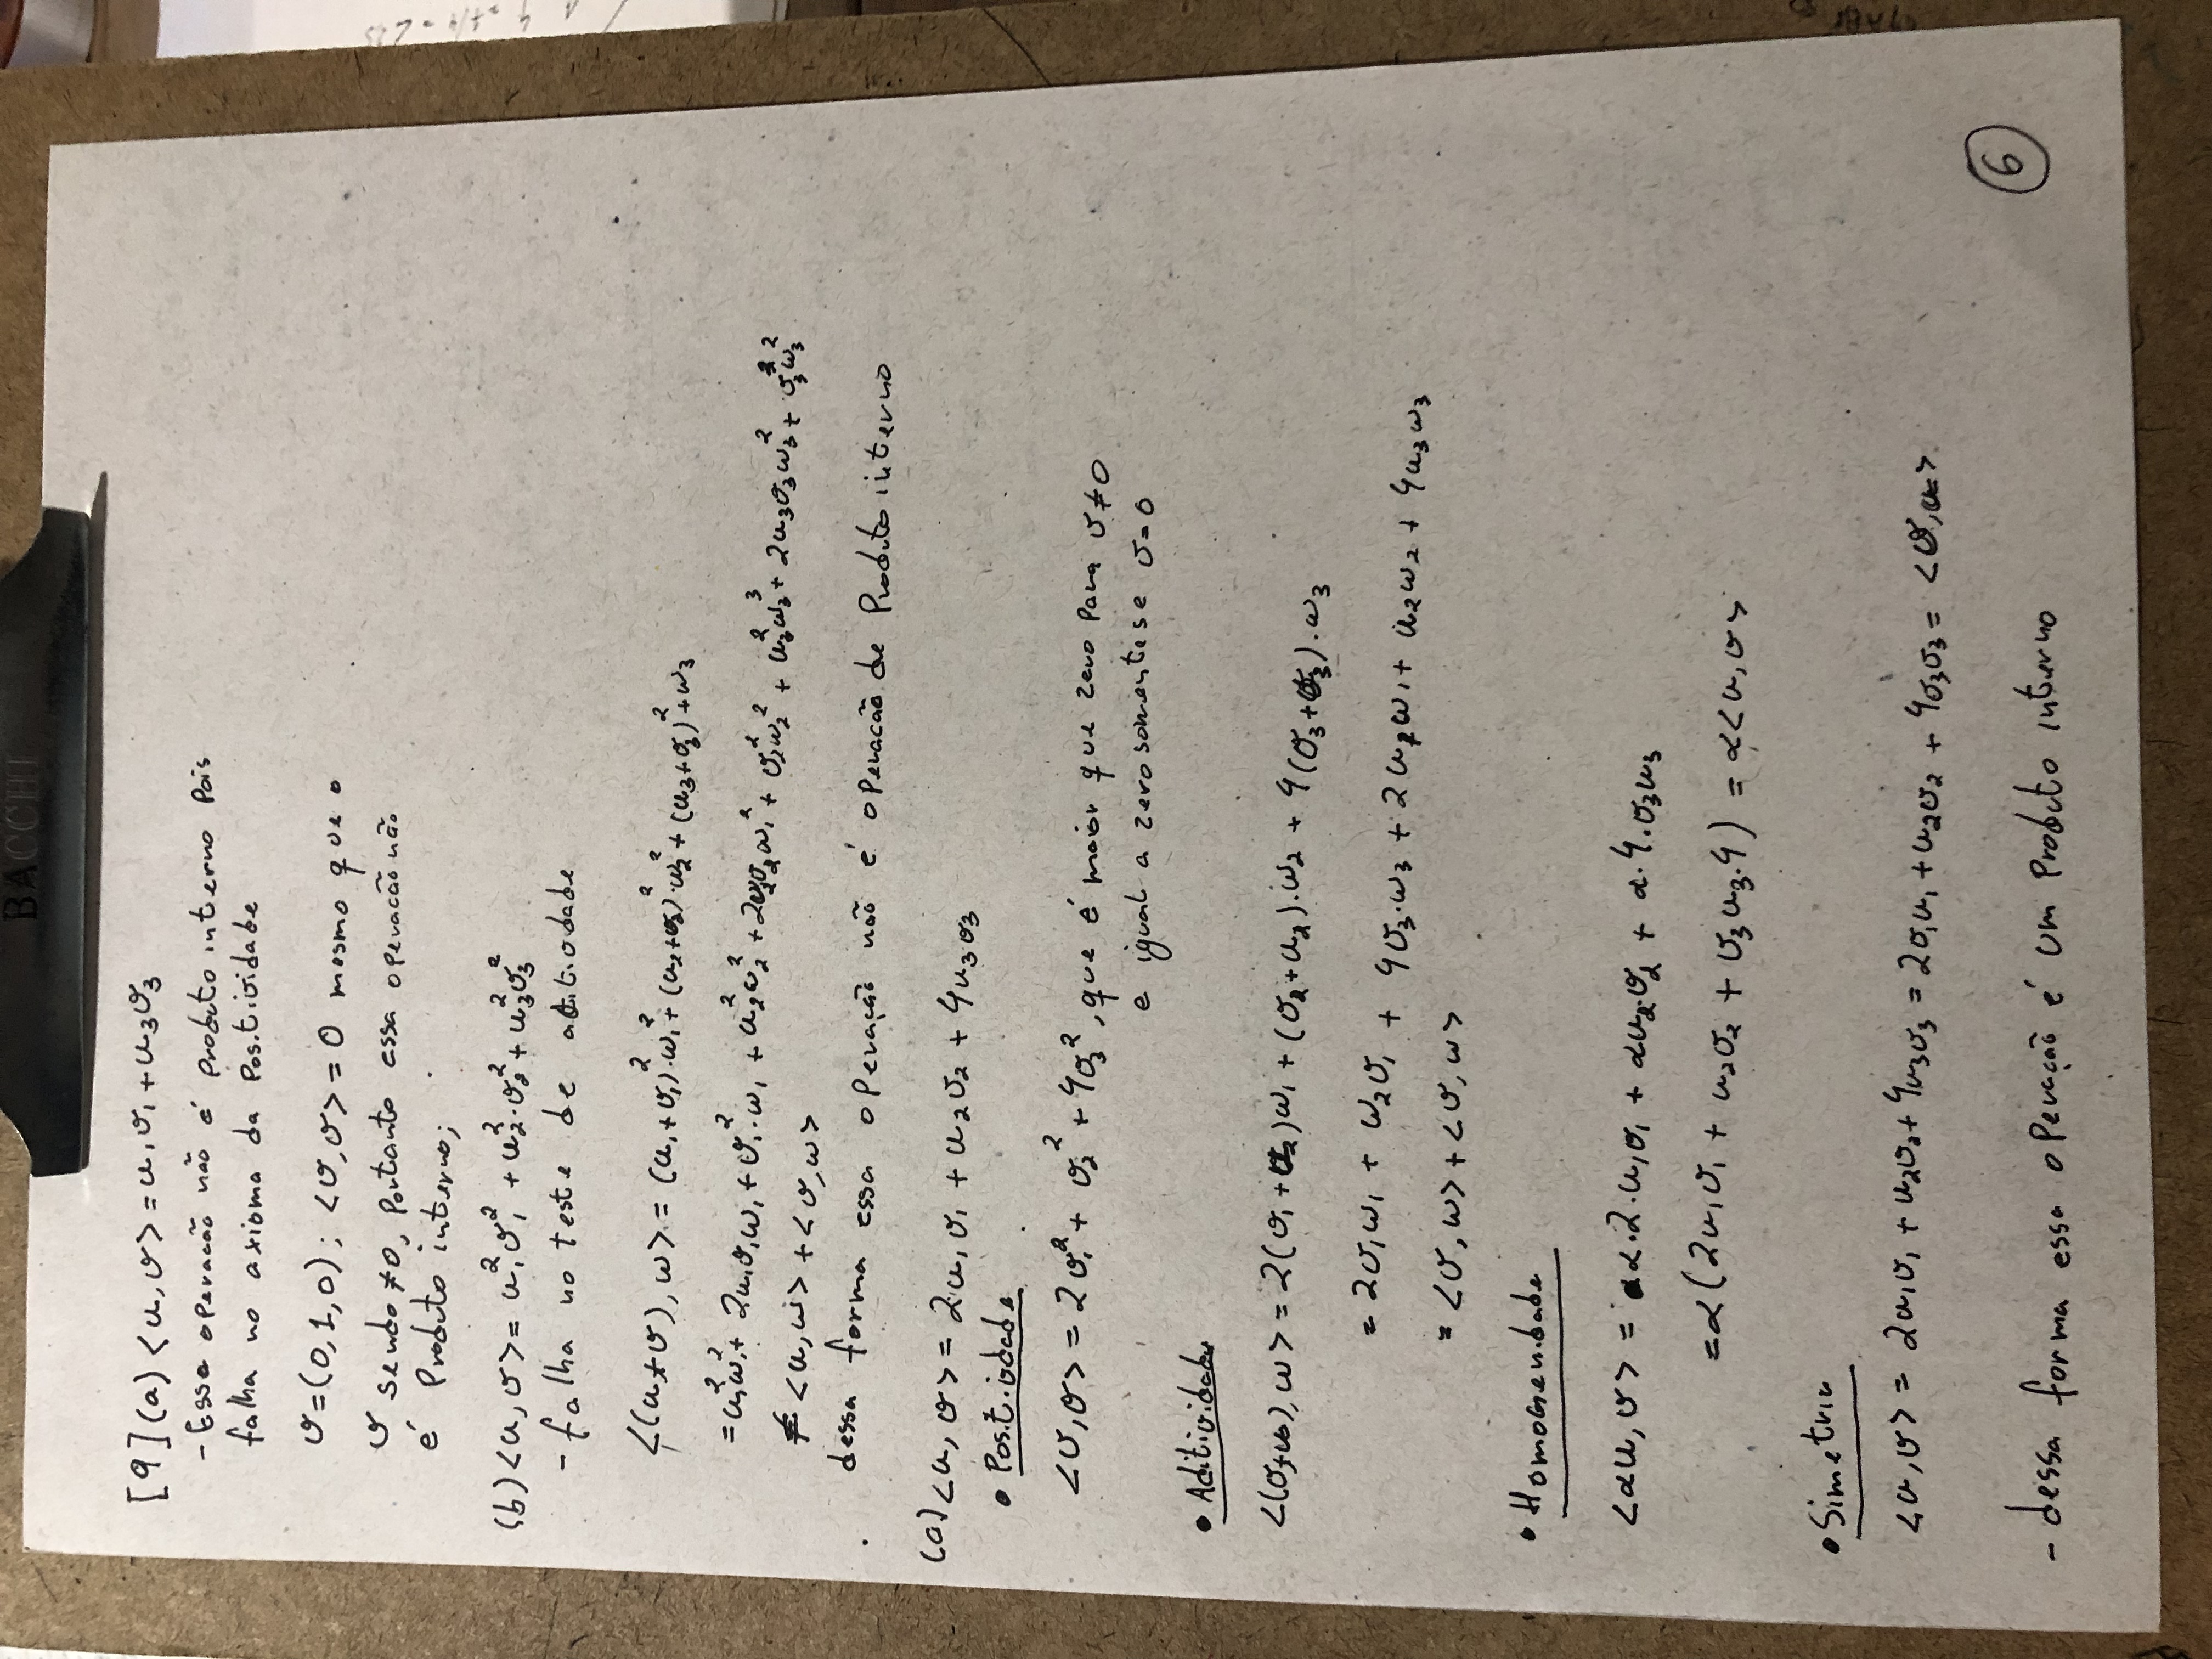 BACCHI
[9](a) <u,v> = u₁v₁ + u₃v₃
- Essa operacão não é produto interno pois
falha no axioma da Positividade
v=(0,1,0); <v,v> = 0 mesmo que o
v sendo ≠0, portanto essa operacão não
é Produto interno;
(b) <u,v> = u₁²v₁² + u₂²·v₂² + u₃²v₃²
- falha no teste de
<(u+v),w> = (u₁+v₁)²·w₁² + (u₂+v₂)²·w₂² + (u₃+v₃)²+w₃
= u₁²w₁² + 2u₁v₁w₁ + v₁²·w₁ + u₂²w₂² + 2u₂v₂w₁² + v₂²w₂² + u₃²w₃³ + 2u₃v₃w₃² + v₃²w₃²
≠ <u,w> + <v,w>
dessa forma essa operação não é operacão de Produto interno
<u,v> = 2u₁v₁ + u₂v₂ + 4u₃v₃
• Positividade
<v,v> = 2v₁² + v₂² + 4v₃², que é maior que zero para v≠0
e igual a zero somente se v=0
• Aditividade
<(v+u),w> = 2(v₁+u₂)w₁ + (v₂+u₂)·w₂ + 4(v₃+u₃)·w₃
= 2v₁w₁ + w₂v₁ + 4v₃·w₃ + 2u₂w₁ + u₂w₂ + 4u₃w₃
= <v,w> + <v,w>
• Homogenidade
<αu,v> = α·2·u₁v₁ + αu₂·v₂ + α·4·v₃u₃
= α(2u₁v₁ + u₂v₂ + v₃u₃·4) = α<u,v>
• Simetria
<u,v> = 2u₁v₁ + u₂v₂ + 4u₃v₃ = 2v₁u₁ + u₂v₂ + 4v₃v₃ = <v,u>
6
- dessa forma essa operação é um Produto interno